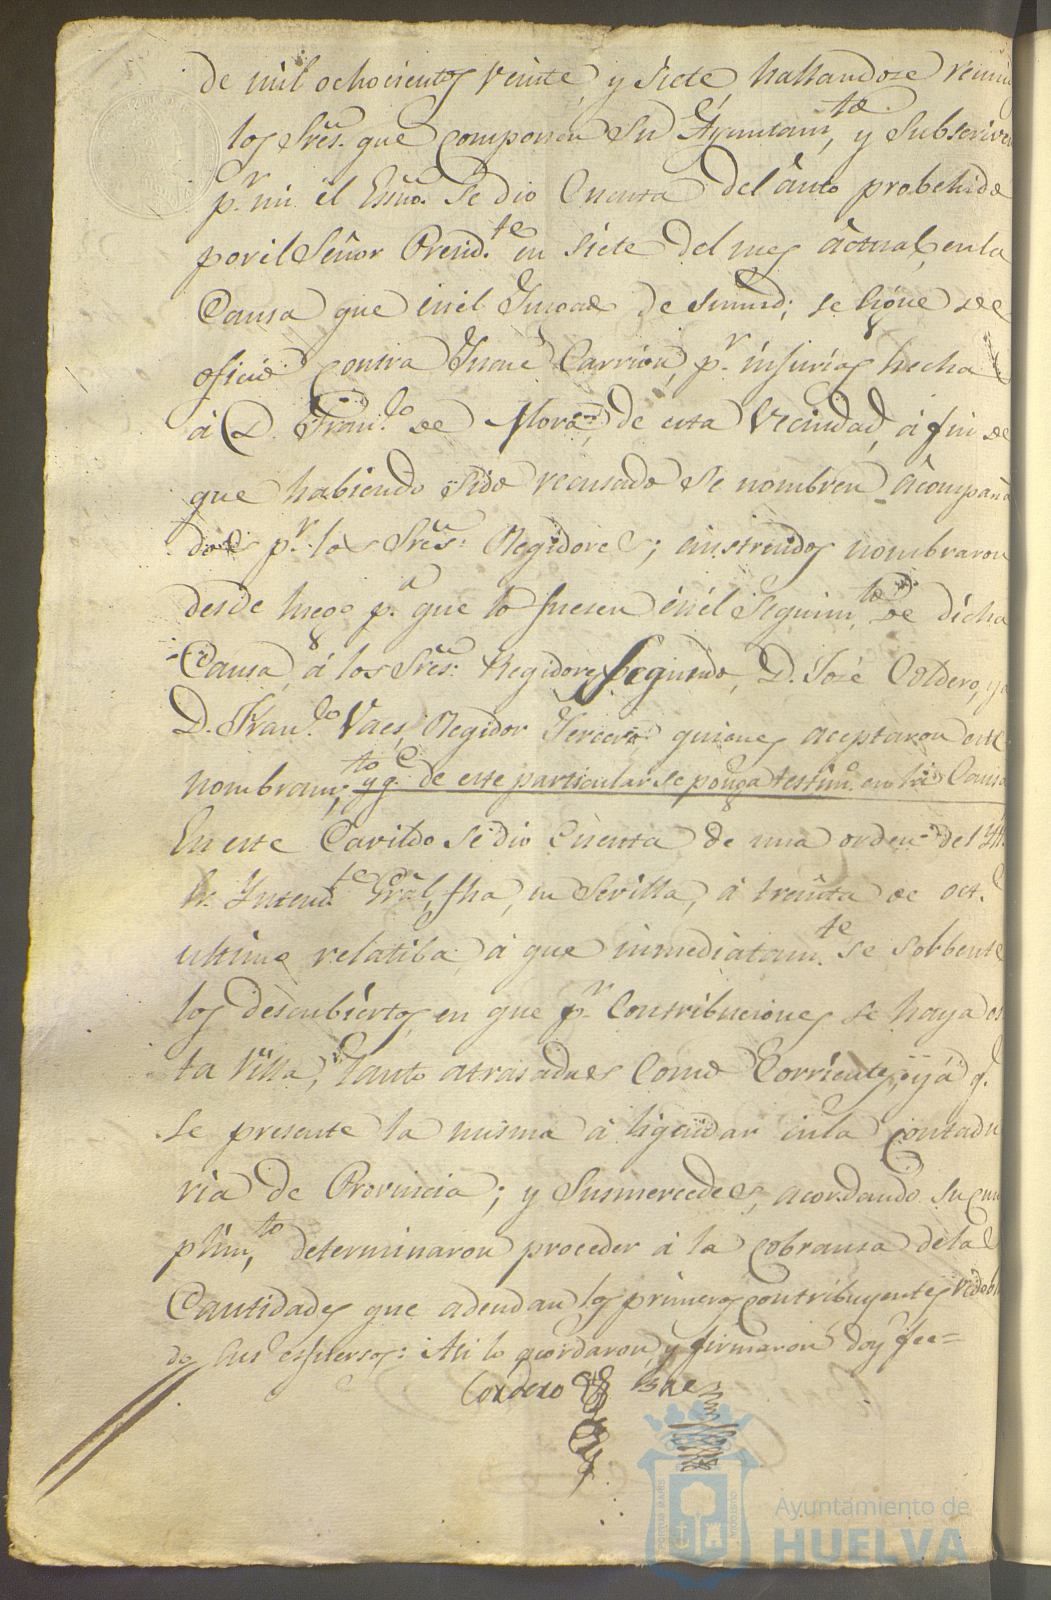 de mil ochocientos veinte, y siete, hallandose reuni
los Sres. que componen su Ayuntamto, y subscriven
pr. mi el Esno. Se dio Cuenta del auto probehido
por el Señor Presidte. en siete del mes actual, en la
Causa que en el de se sigue de
oficio contra Carrion, pr. injurias hecha
á D. Franco. de Mora, de esta Vecindad, á fin de
que habiendo sido recusado se nombren acompaña
dos pr. los Sres. Regidores; é instruidos nombraron
desde luego pa. que lo fuesen en el Seguimto. de dicha
Causa, á los Sres. Regidores Segundo, D. José Cordero, y a
D. Franco. Vaes, Regidor Tercero quienes aceptaron este
nombramto; y qe. de este particular se ponga testimo. en la Causa
En este Cavildo se dio Cuenta de una orden del
Sr. Intendte. Gral, fha, en Sevilla, á treinta de oct.
ultimo relatiba, á que inmediatamte. se solbente
los descubiertos, en que pr. Contribuciones se haya es
ta Villa, tanto atrasadas como Corrientes; y á q.
se presente la misma á liquidar en la contadu
ria de Provincia; y Susmercedes, acordando su cum
plimto, determinaron proceder á la cobransa de la
Cantidades que adeudan los primeros contribuyentes,
do sus esfuersos: Asi lo acordaron, y firmaron doy fee=
Cordero Vaes
Ayuntamiento de
HUELVA